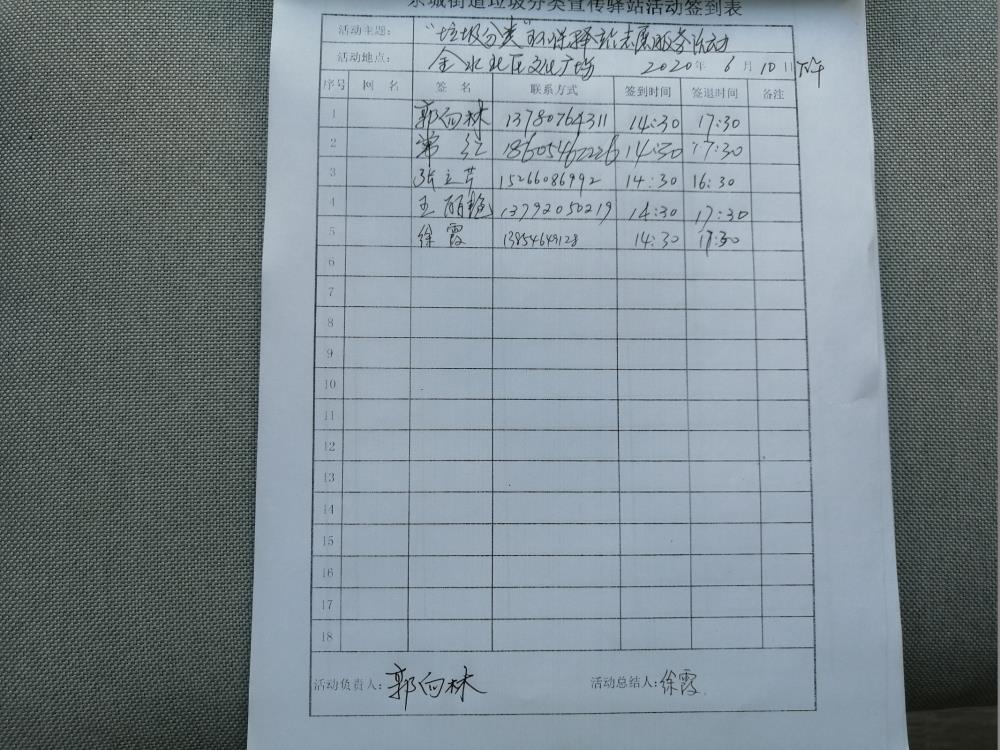 东城街道垃圾分类宣传驿站活动签到表
活动主题: "垃圾分类"环保驿站志愿服务活动
活动地点: 金水北区文化广场 2020年 6月10日下午
序号 网 名 签 名 联系方式 签到时间 签退时间 备注
1 郭向林 13780764311 14:30 17:30
2 常 红 18605462226 14:30 17:30
3 张立芹 15266086992 14:30 16:30
4 王丽艳 13792050219 14:30 17:30
5 徐霞 13854649128 14:30 17:30
6
7
8
9
10
11
12
13
14
15
16
17
18
活动负责人: 郭向林 活动总结人: 徐霞